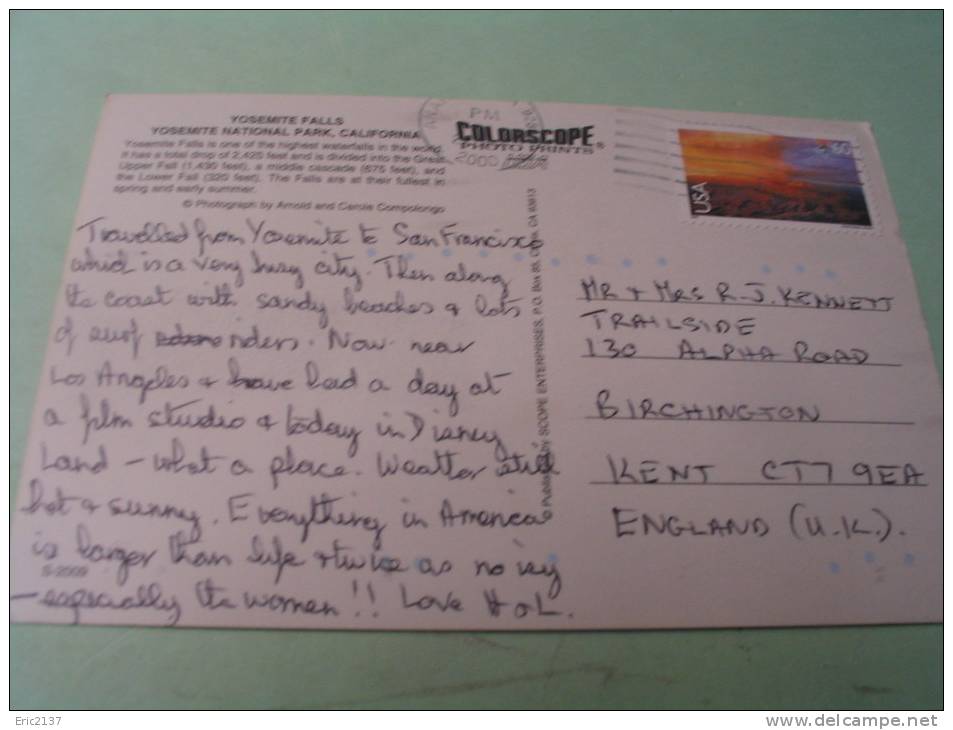 YOSEMITE FALLS
YOSEMITE NATIONAL PARK, CALIFORNIA
Yosemite Falls is one of the highest waterfalls in the world.
It has a total drop of 2,425 feet and is divided into the Great
Upper Fall (1,430 feet), a middle cascade (675 feet), and
the Lower Fall (320 feet). The Falls are at their fullest in
spring and early summer.
© Photograph by Arnold and Carole Compolongo
PM
2000
COLORSCOPE®
PHOTO PRINTS
USA
60
Travelled from Yosemite to San Francisco
which is a very busy city. Then along
the coast with sandy beaches & lots
of surf riders. Now near
Los Angeles & have had a day at
a film studio & today in Disney
Land – what a place. Weather still
hot & sunny. Everything in America
is larger than life & twice as noisy
– especially the women!! Love H & L.
S-2009
Published by SCOPE ENTERPRISES, P.O. Box 85, CA 93613
MR & MRS R. J. KENNETT
TRAILSIDE
130 ALPHA ROAD
BIRCHINGTON
KENT CT7 9EA
ENGLAND (U.K.).
Eric2137
www.delcampe.net